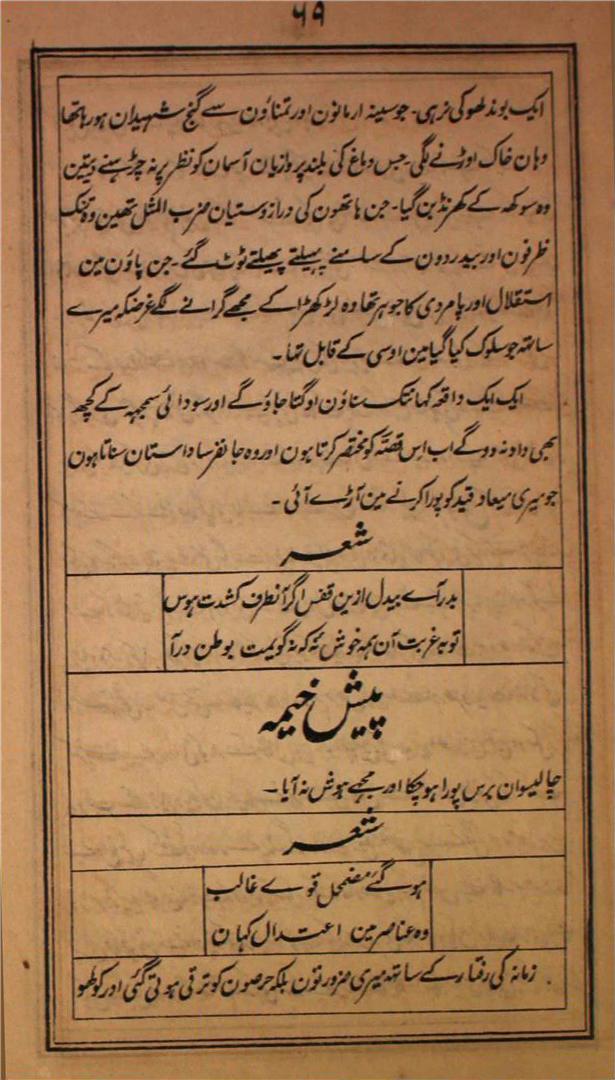 ۶۹
ایک بوند لہو کی نرہی۔ جو سینہ ارمانون اور تمناؤن سے گنج شہیدان ہو رہا تھا
وہان خاک اوڑنے لگی۔ جس دماغ کی بلند پروازیان آسمان کو نظر پر نہ چڑہنے دیتین
وہ سوکھہ کے کھرنڈ بن گیا۔ جن ہاتھون کی دراز دستیان ضرب المثل تھین وہ تنگ
ظرفون اور بیدردون کے سامنے پہیلتے پھیلتے ٹوٹ گئے۔ جن پاؤن مین
استقلال اور پامردی کا جوہر تھا وہ لڑکھڑا کے مجھے گرانے لگے غرضکہ میرے
ساتہہ جو سلوک کیا گیا مین اوسی کے قابل تہا۔
ایک ایک واقعہ کہانتک سناؤن اوگتا جاؤ گے اور سودائی سمجہہ کے کچھ
بھی داد نہ دو گے اب اس قصّہ کو مختصر کرتا ہون اور وہ جانفرسا داستان سناتا ہون
جو میری میعاد قید کو پورا کرنے مین آڑے آئی۔
شعر
بدر آے بیدل ازین قفس اگر آنطرف کشدت ہوس
تو بہ غربت آن ہمہ خوش نۂ کہ نہ گویمت بوطن درآ
پیش خیمہ
چالیسوان برس پورا ہو چکا اور مجہے ہوش نہ آیا۔
شعر
ہو گئے مضمحل قوے غالب
وہ عناصر مین اعتدال کہان
زمانہ کی رفتار کے ساتہہ میری ضرورتون بلکہ حرصون کو ترقی ہوتی گئی اور کولھو